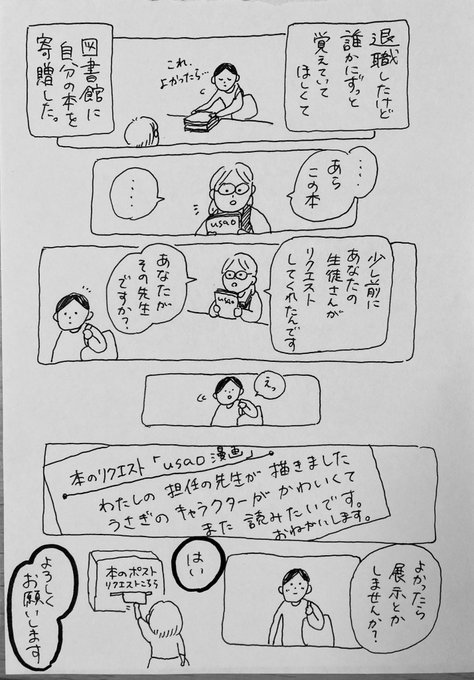 退職したけど
誰かにずっと
覚えていて
ほしくて
これ、
よかったら…
図書館に
自分の本を
寄贈した。
‥‥
あら
この本
usao
‥‥
少し前に
あなたの
生徒さんが
リクエスト
してくれたんです
usao
あなたが
その先生
ですか?
えっ
本のリクエスト「usao漫画」
わたしの担任の先生が描きました
うさぎのキャラクターがかわいくて
また読みたいです。
おねがいします。
よかったら
展示とか
しませんか?
はい
本のポスト
リクエストこちら
よろしく
お願いします